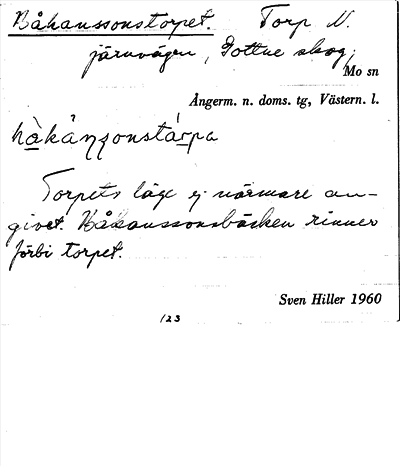 Håkanssonstorpet. Torp N.
järnvägen, Gottne skog;
Mo sn
Ångerm. n. doms. tg, Västern. l.
hàkånsonstárpa
Torpets läge ej närmare an-
givet. Håkanssonsbäcken rinner
förbi torpet.
Sven Hiller 1960
123